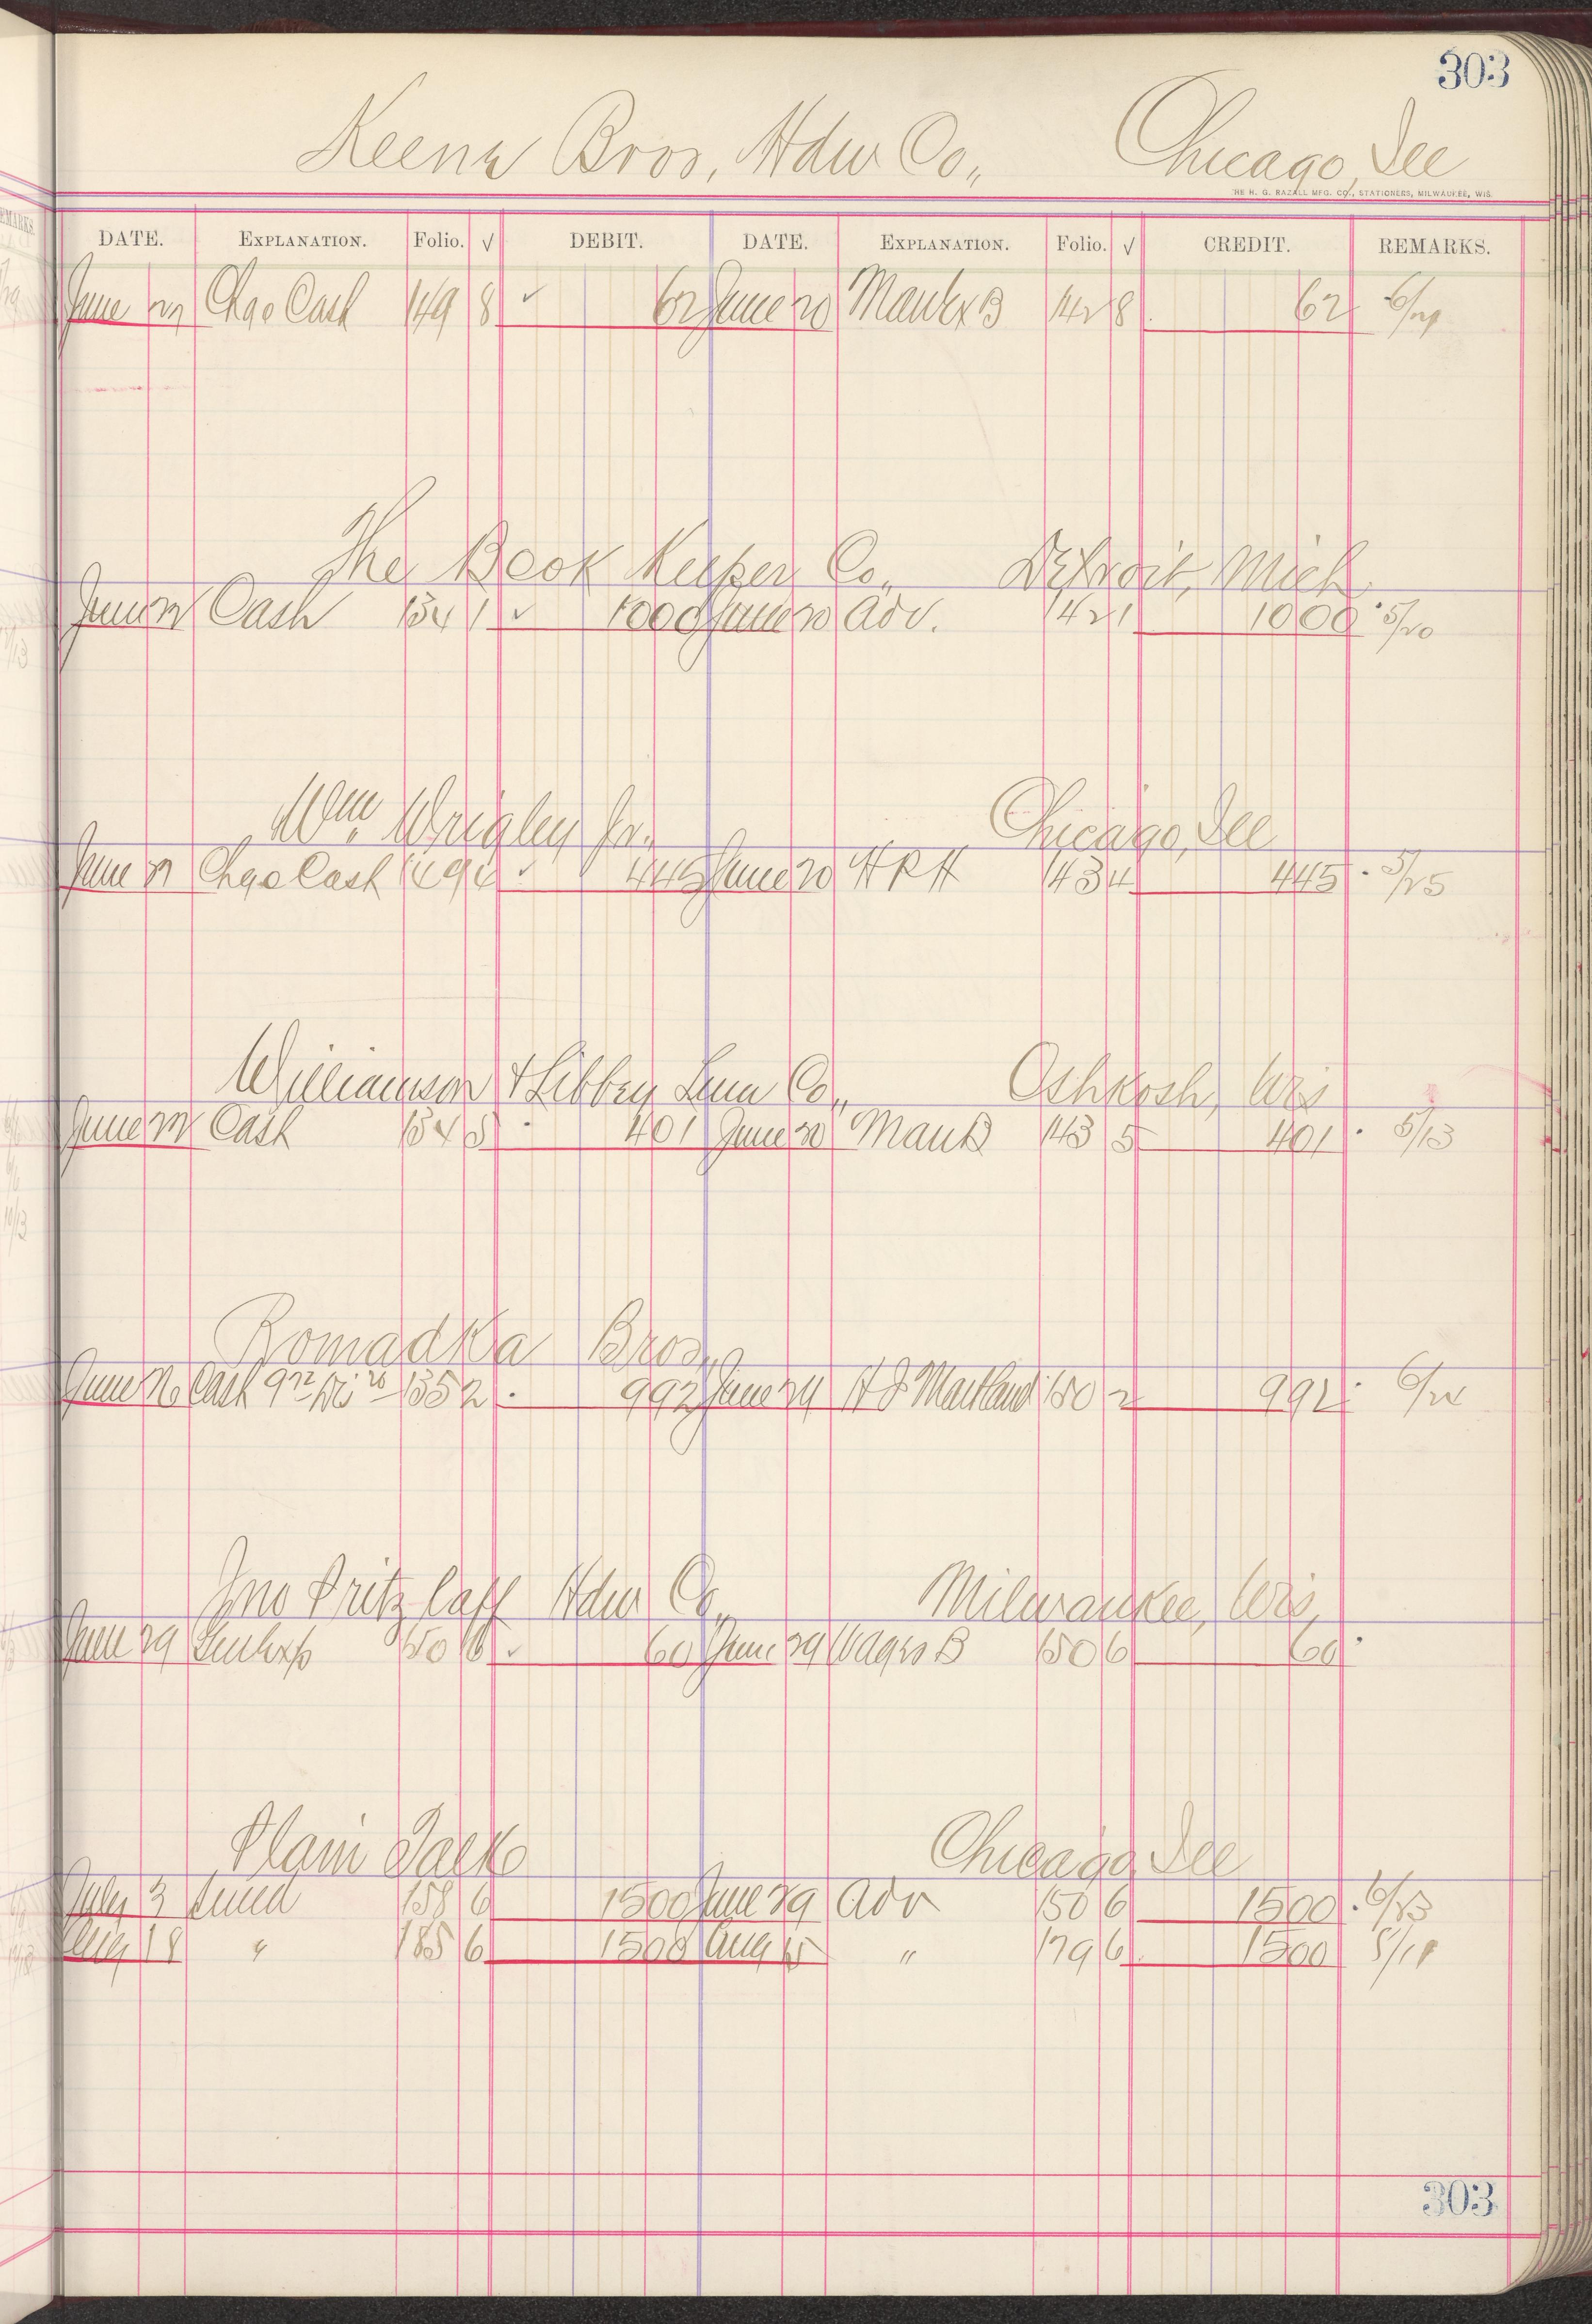 303
Keene Bros, Hdw Co., Chicago, Ill
THE H. G. RAZALL MFG. CO., STATIONERS, MILWAUKEE, WIS.
DATE. EXPLANATION. Folio. √ DEBIT. DATE. EXPLANATION. Folio. √ CREDIT. REMARKS.
June 22 Chgo Cash 149 8 ✓ 62 June 20 Man Ex B 142 8 62 6/21
The Book Keeper Co., Detroit, Mich
June 22 Cash 134 1 ✓ 1000 June 20 Adv. 142 1 1000 5/20
Wm. Wrigley Jr., Chicago, Ill
June 22 Chgo Cash 149 4 ✓ 445 June 20 H R H 143 4 445 5/25
Williamson & Libbey Lum Co., Oshkosh, Wis
June 22 Cash 134 5 401 June 20 Man B 143 5 401 5/13
Romadka Bros,,
June 26 Cash 972 Di 20 135 2 992 June 24 H J Maitland 150 2 992 6/22
Jno Pritzlaff Hdw Co., Milwaukee, Wis,
June 29 GenExp 150 6 ✓ 60 June 29 Wages B 150 6 60
Plain Talk Chicago, Ill
July 3 158 6 1500 June 29 Adv 150 6 1500 6/23
Aug 18 " 185 6 1500 Aug 15 " 179 6 1500 8/11
303